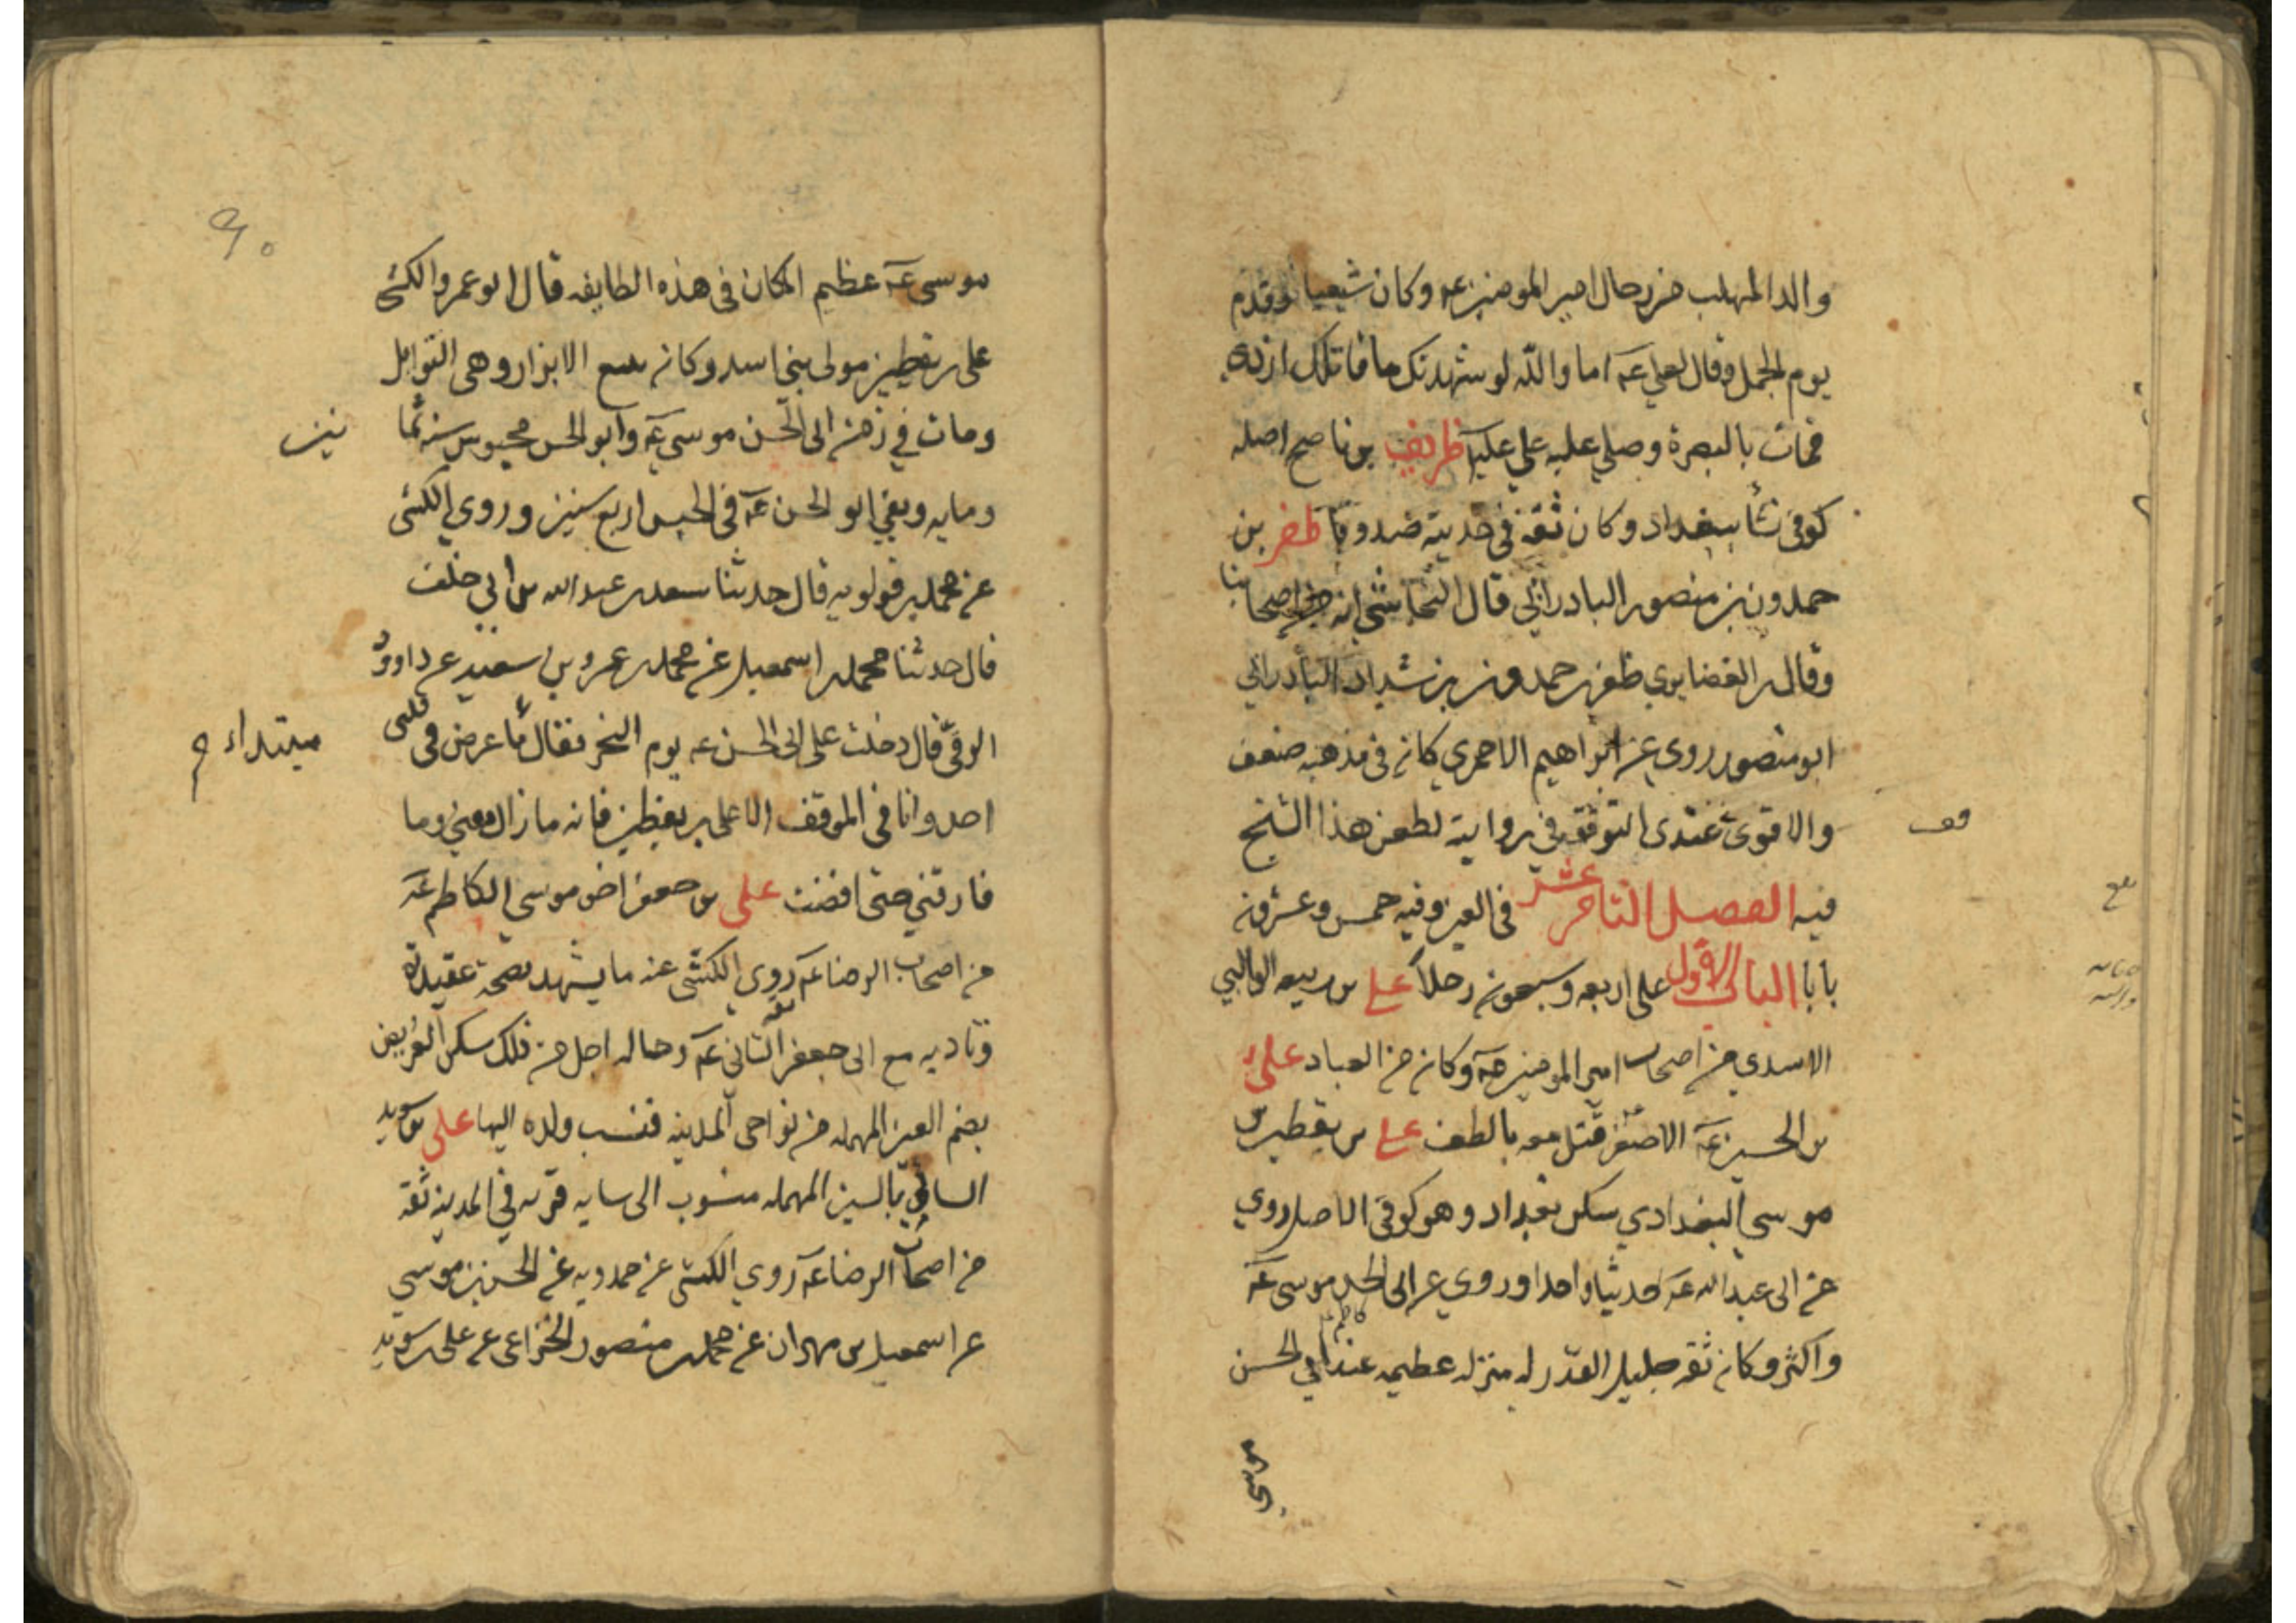 والد المهلب من رجال امير المومنين عه وكان شيعيا وقدم
يوم الجمل وقال لعلي عه اما والله لو شهدتك ما قاتلك ازدي
فمات بالبصرة وصلي عليه علي عليه ظريف بن ناصح اصله
كوفي نشأ ببغداد وكان ثقة في حديثه صدوقا ظفر بن
حمدون بن منصور البادرائي قال النجاشي انه من اصحابنا
وقال بن الغضايري ظفر بن حمدون بن شداد البادرائي
ابو منصور روي عن ابراهيم الاحمري كان في مذهبه ضعف
والاقوي عندى التوقف في روايته لطعن هذا الشيخ
قف
فيه الفصل الثامن عشر في العين وفيه خمس وعشرون
بابا الباب الاول على اربعه وسبعون رجلا علي بن ربيعه الوالبي
الاسدي من اصحاب امير المومنين عه وكان من العباد علي
بن الحسين عه الاصغر قتل معه بالطف علي بن يقطين بن
موسي البغدادي سكن بغداد وهو كوفي الاصل روي
عن ابي عبد الله عه حديثا واحدا وروي عن ابي الحسن موسى عه
واكثر وكان ثقه جليل القدر له منزله عظيمه عند ابي الحسن
موسي
موسى عه عظيم المكان فى هذه الطايفه قال ابو عمرو الكشي
على بن يقطين مولى بني اسد وكان يبيع الابزار وهي التوابل
ومات في زمن ابي الحسن موسى عه وابو الحسن محبوس سنه ثما
نين
ومايه وبقي ابو الحسن عه فى الحبس اربع سنين وروي الكشى
عن محمد بن قولويه قال حدثنا سعد بن عبد الله بن ابي خلف
قال حدثنا محمد بن اسمعيل عن محمد بن عمرو بن سعيد عن داوود
الرقي قال دخلت على ابي الحسن عه يوم النحر فقال ما عرض في قلبى
مبتداء
احد وانا فى الموقف الا على بن يقطين فانه ما زال معي وما
فارقني حتى افضت على بن جعفر اخو موسى الكاظم عه
من اصحاب الرضا عه روي الكشى عنه ما يشهد بصحة عقيدته
وتاديه مع ابى جعفر الثاني عه وحاله اجل من ذلك سكن العريض
بضم العين المهمله من نواحى المدينه فنسب ولده اليها على بن سويد
السائي بالسين المهمله منسوب الى سايه قريه في المدينه ثقه
من اصحاب الرضا عه روي الكشى عن حمدويه عن الحسن بن موسي
عن اسمعيل بن مهران عن محمد بن منصور الخزاعى عن على بن سويد